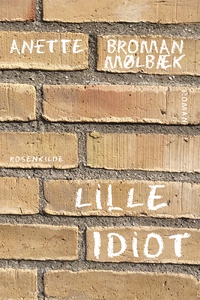 ANETTE BROMAN
MØLBÆK
ROMAN
ROSENKILDE
LILLE
IDIOT